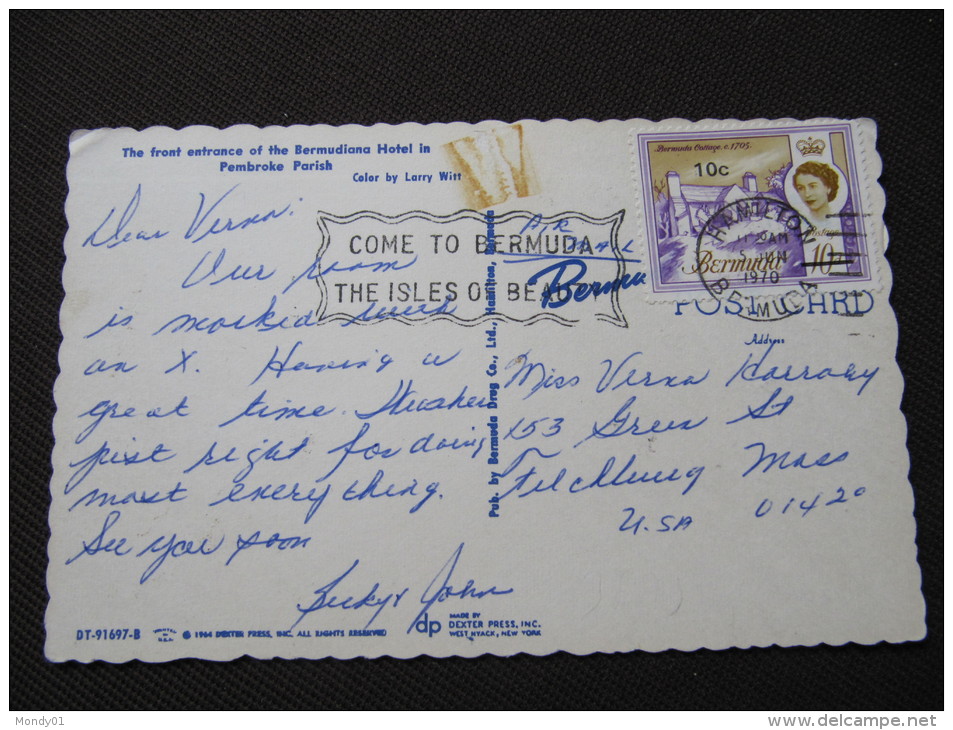 The front entrance of the Bermudiana Hotel in
Pembroke Parish
Color by Larry Witt
Dear Verna:
Our room
is marked with
an X. Having a
great time. Weather
just right for doing
most everything.
See you soon
Becky & John
DT-91697-B
© 1964 DEXTER PRESS, INC. ALL RIGHTS RESERVED
dp
MADE BY
DEXTER PRESS, INC.
WEST NYACK, NEW YORK
Pub. by Bermuda Drug Co., Ltd., Hamilton, Bermuda
COME TO BERMUDA
THE ISLES OF BEAUTY
AIR
MAIL
Bermuda Cottage, c.1705
10c
Postage
Bermuda
10
HAMILTON
AM
JUN
1970
BERMUDA
POST CARD
Address
Miss Verna
153 Green St
Fitchburg Mass
U.SA 01420
Mondy01
www.delcampe.net